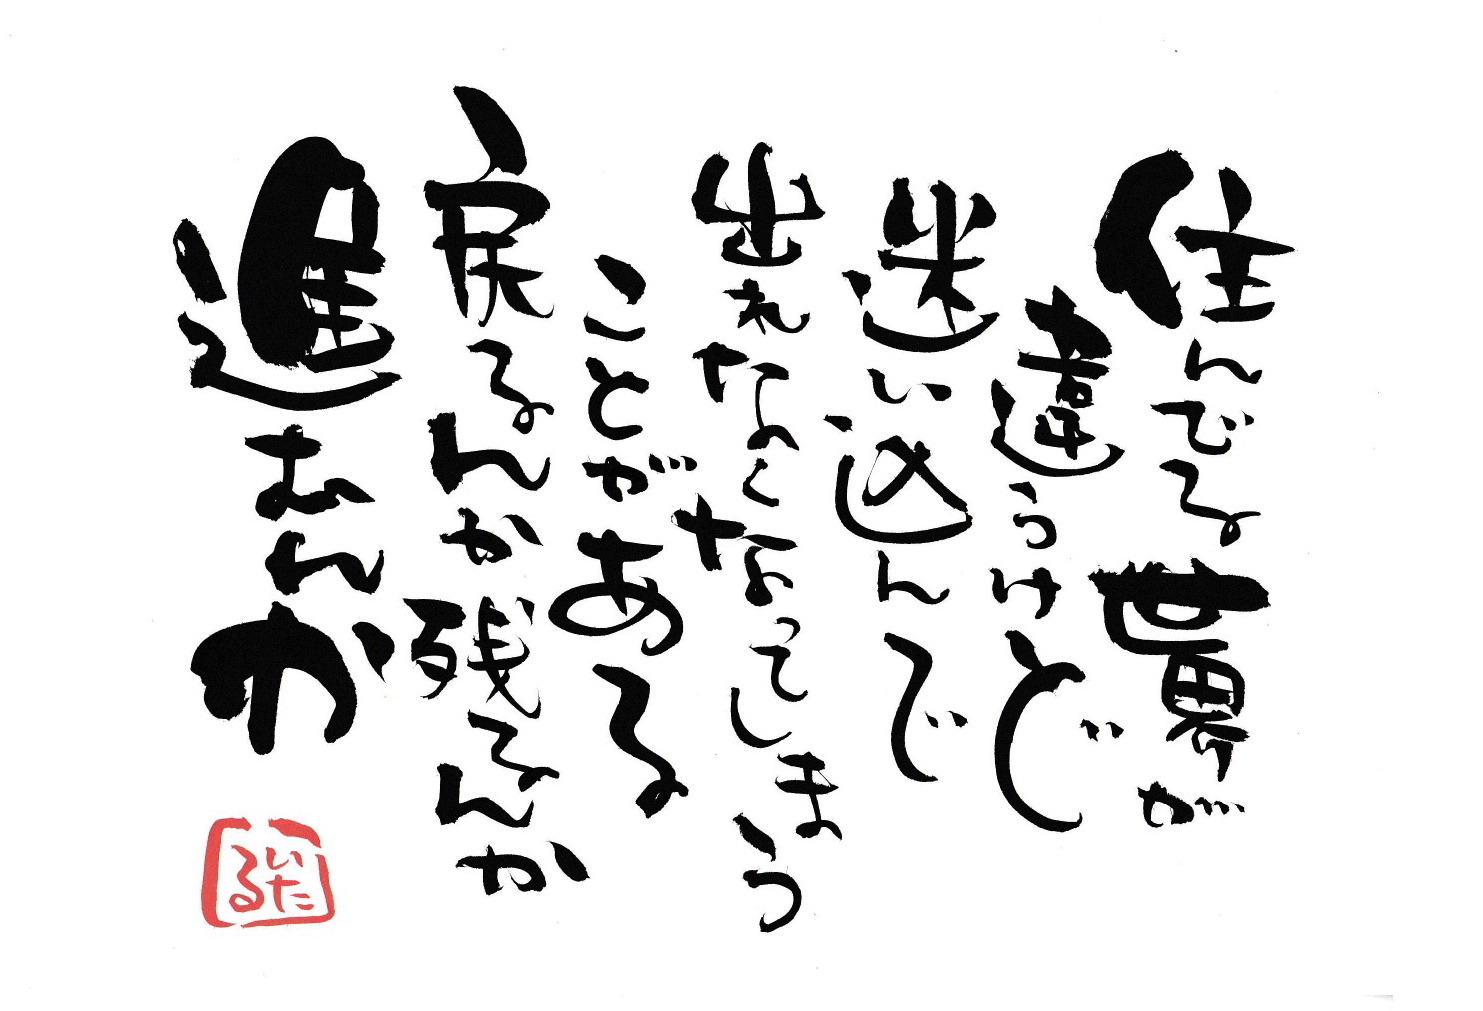 住んでる世界が
違うけど
迷い込んで
出れなくなってしまう
ことがある
戻るんか残るんか
進むんか
いたる